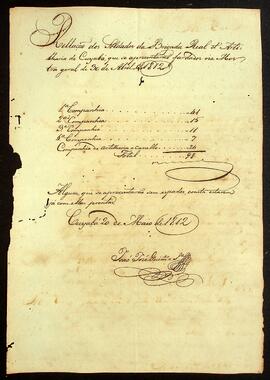 Rellação dos Soldados da Brigada Real d'Arti
lharia do Cuyabá que se apresentarão fardados na Mos
tra geral de 30 de Abril de 1812
1ª Companhia 41
2ª Companhia 15
3ª Companhia 11
4ª Companhia 7
Companhia de Artilharia a cavallo
Total 98
Alguns que se apresentarão sem espadas
Cuyabá 20 de Maio de 1812